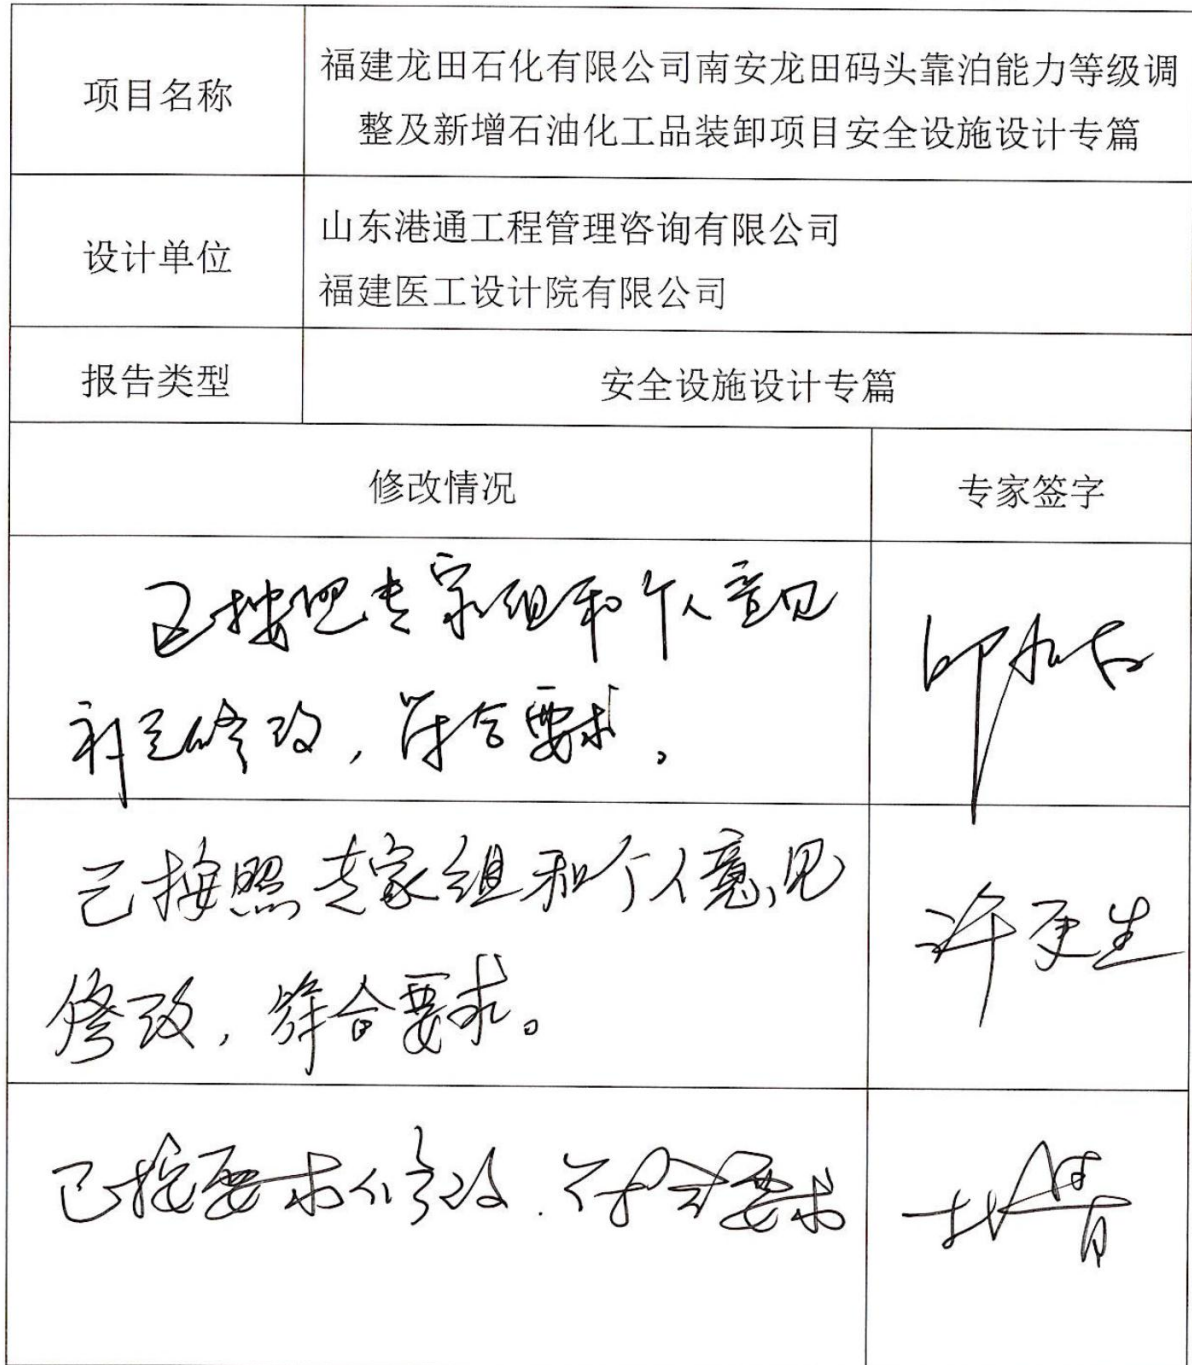 项目名称
福建龙田石化有限公司南安龙田码头靠泊能力等级调
整及新增石油化工品装卸项目安全设施设计专篇
设计单位
山东港通工程管理咨询有限公司
福建医工设计院有限公司
报告类型
安全设施设计专篇
修改情况
专家签字
已按照专家组和个人意见
补充修改，符合要求。
已按照专家组和个人意见
修改，符合要求。
许更生
已按要求修改.符合要求